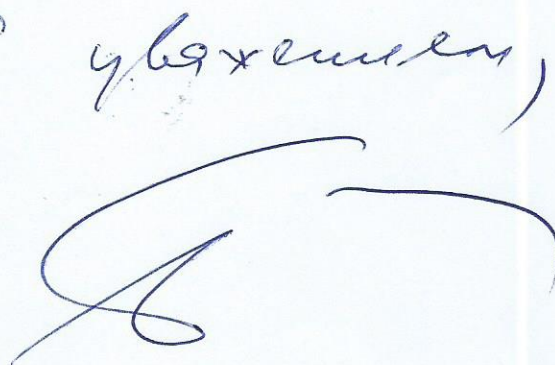 уважением,